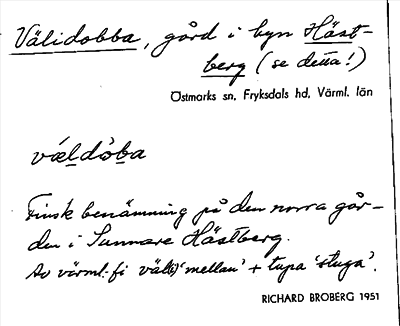 Välidobba, gård i byn Häst-
berg (se detta!)
Östmarks sn, Fryksdals hd, Värml. län
vǽldòba
Finsk benämning på den norra går-
den i Sunnare Hästberg.
Av värml.-fi väli 'mellan' + tupa 'stuga'.
RICHARD BROBERG 1951